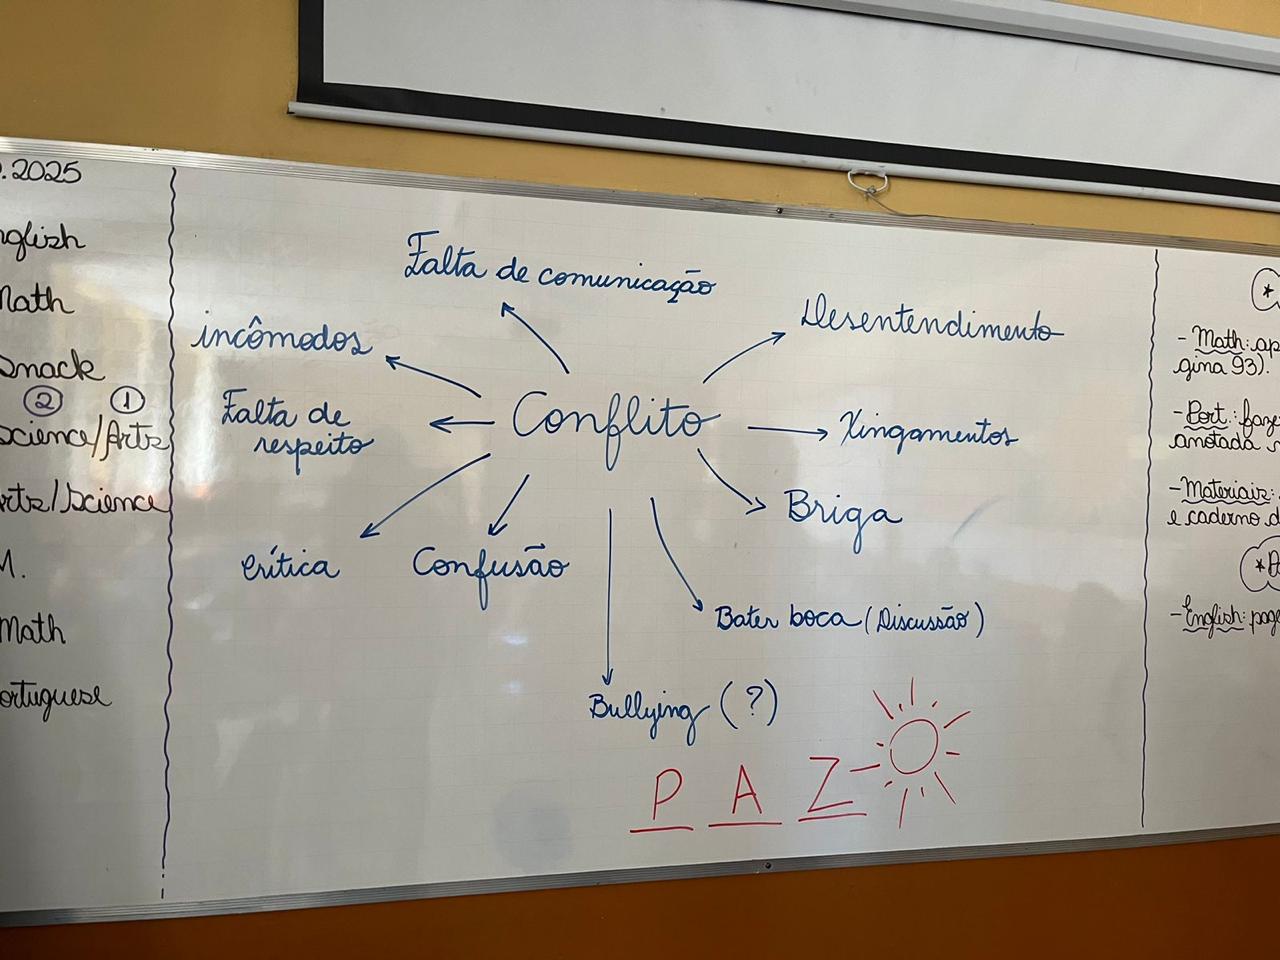 .2025
nglish
Math
Snack
2 1
Science/Arts
rts/Science
M.
Math
ortuguese
Falta de comunicação
incômodos
Desentendimento
Falta de
respeito
Conflito
Xingamentos
Briga
crítica
Confusão
Bater boca (Discussão)
Bullying (?)
P A Z
- Math: ap
gina 93).
- Port.: faze
anotada
- Materiais:
e caderno d
- English: page